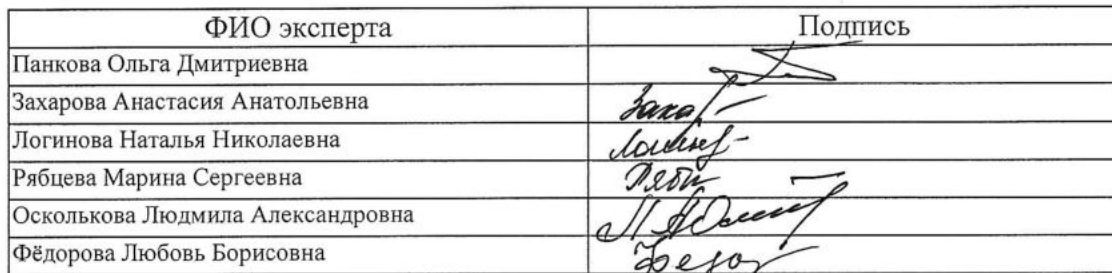 ФИО эксперта Подпись
Панкова Ольга Дмитриевна
Захарова Анастасия Анатольевна Заха
Логинова Наталья Николаевна
Рябцева Марина Сергеевна Рябц
Осколькова Людмила Александровна
Фёдорова Любовь Борисовна Федо